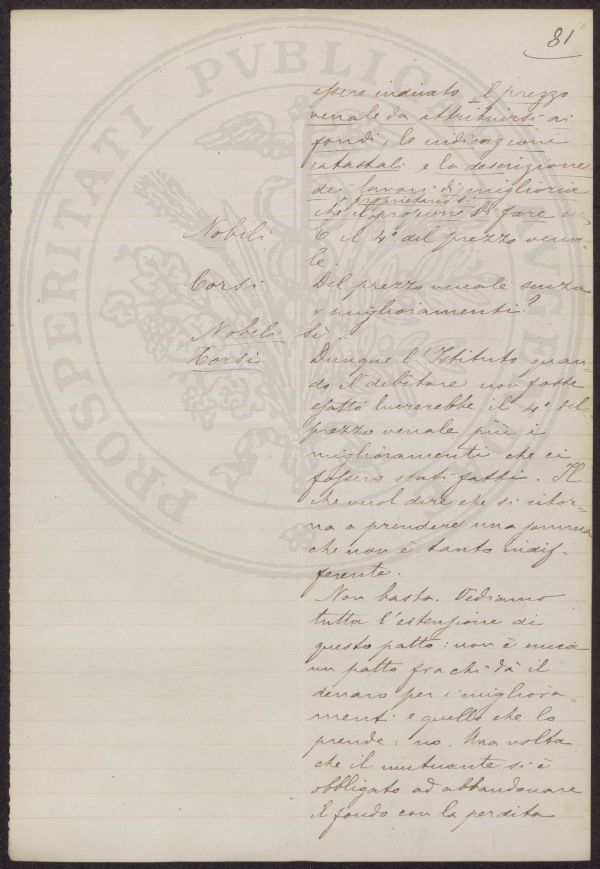 81
essere indicato il prezzo
venale da attribuirsi ai
fondi, le indicazioni
catastali e la descrizione
dei lavori di miglioria
proprietario si
che il propone di fare
Nobili E il 4° del prezzo vena-
le.
Corsi Del prezzo venale senza
i miglioramenti?
Nobili Sì
Corsi Dunque l'Istituto quan-
do il debitore non fosse
esatto lucrerebbe il 4° del
prezzo venale più i
miglioramenti che ci
fossero stati fatti. Il
che vuol dire che si ritor-
na a prendere una somma
che non è tanto indif-
ferente.
Non basta. Vediamo
tutta l'estensione di
questo patto: non è mica
un patto fra chi dà il
denaro per i migliora-
menti e quello che lo
prende: no. Una volta
che il mutuante si è
obbligato ad abbandonare
il fondo con la perdita
PROSPERITATI PVBLICAE AVGENDAE